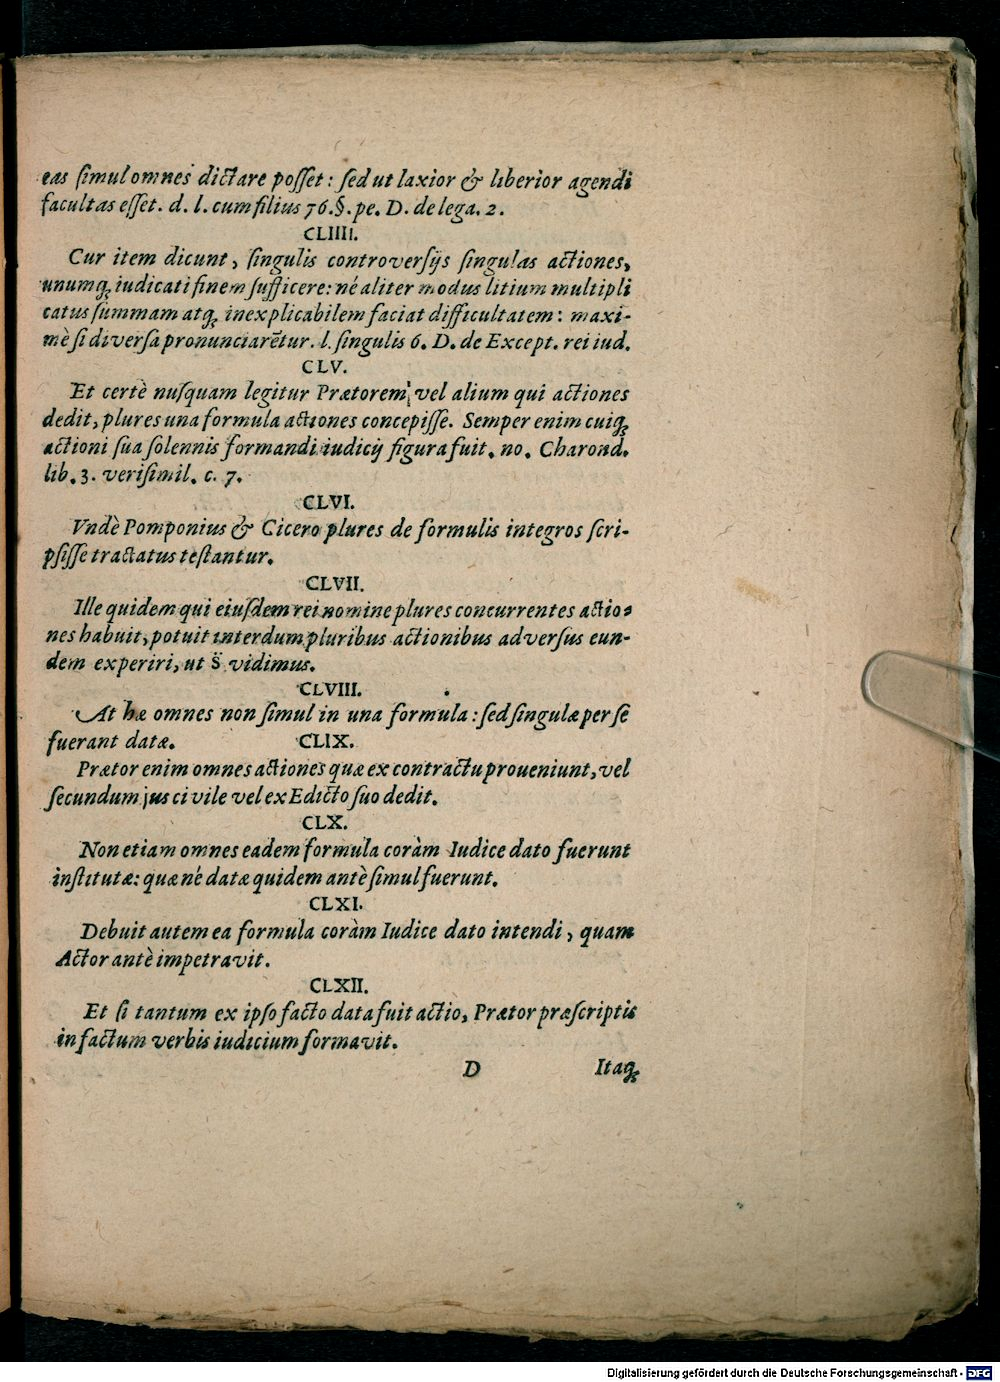 eas ſimul omnes dictare poſſet: ſed ut laxior & liberior agendi
facultas eſſet. d. l. cum filius 76. §. pe. D. de lega. 2.
CLIIII.
Cur item dicunt, ſingulis controverſijs ſingulas actiones,
unumq́ iudicati finem ſufficere: né aliter modus litium multipli
catus ſummam atq́ inexplicabilem faciat difficultatem: maxi-
mè ſi diverſa pronunciarētur. l. ſingulis 6. D. de Except. rei iud.
CLV.
Et certè nuſquam legitur Prætorem vel alium qui actiones
dedit, plures una formula actiones concepiſſe. Semper enim cuiq́
actioni ſua ſolennis formandi iudicij figura fuit. no. Charond.
lib. 3. veriſimil. c. 7.
CLVI.
Vndè Pomponius & Cicero plures de formulis integros ſcri-
pſiſſe tractatus teſtantur.
CLVII.
Ille quidem qui eiuſdem rei nomine plures concurrentes actio-
nes habuit, potuit interdum pluribus actionibus adverſus eun-
dem experiri, ut s̈ vidimus.
CLVIII.
At hæ omnes non ſimul in una formula: ſed ſingulæ per ſe
fuerant datæ. CLIX.
Prætor enim omnes actiones quæ ex contractu proueniunt, vel
ſecundum jus civile vel ex Edicto ſuo dedit.
CLX.
Non etiam omnes eadem formula coràm Iudice dato fuerunt
inſtitutæ: quæ né datæ quidem antè ſimul fuerunt.
CLXI.
Debuit autem ea formula coràm Iudice dato intendi, quam
Actor antè impetravit.
CLXII.
Et ſi tantum ex ipſo facto data fuit actio, Prætor præſcriptis
in factum verbis iudicium formavit.
D Itaq́
Digitalisierung gefördert durch die Deutsche Forschungsgemeinschaft - DFG